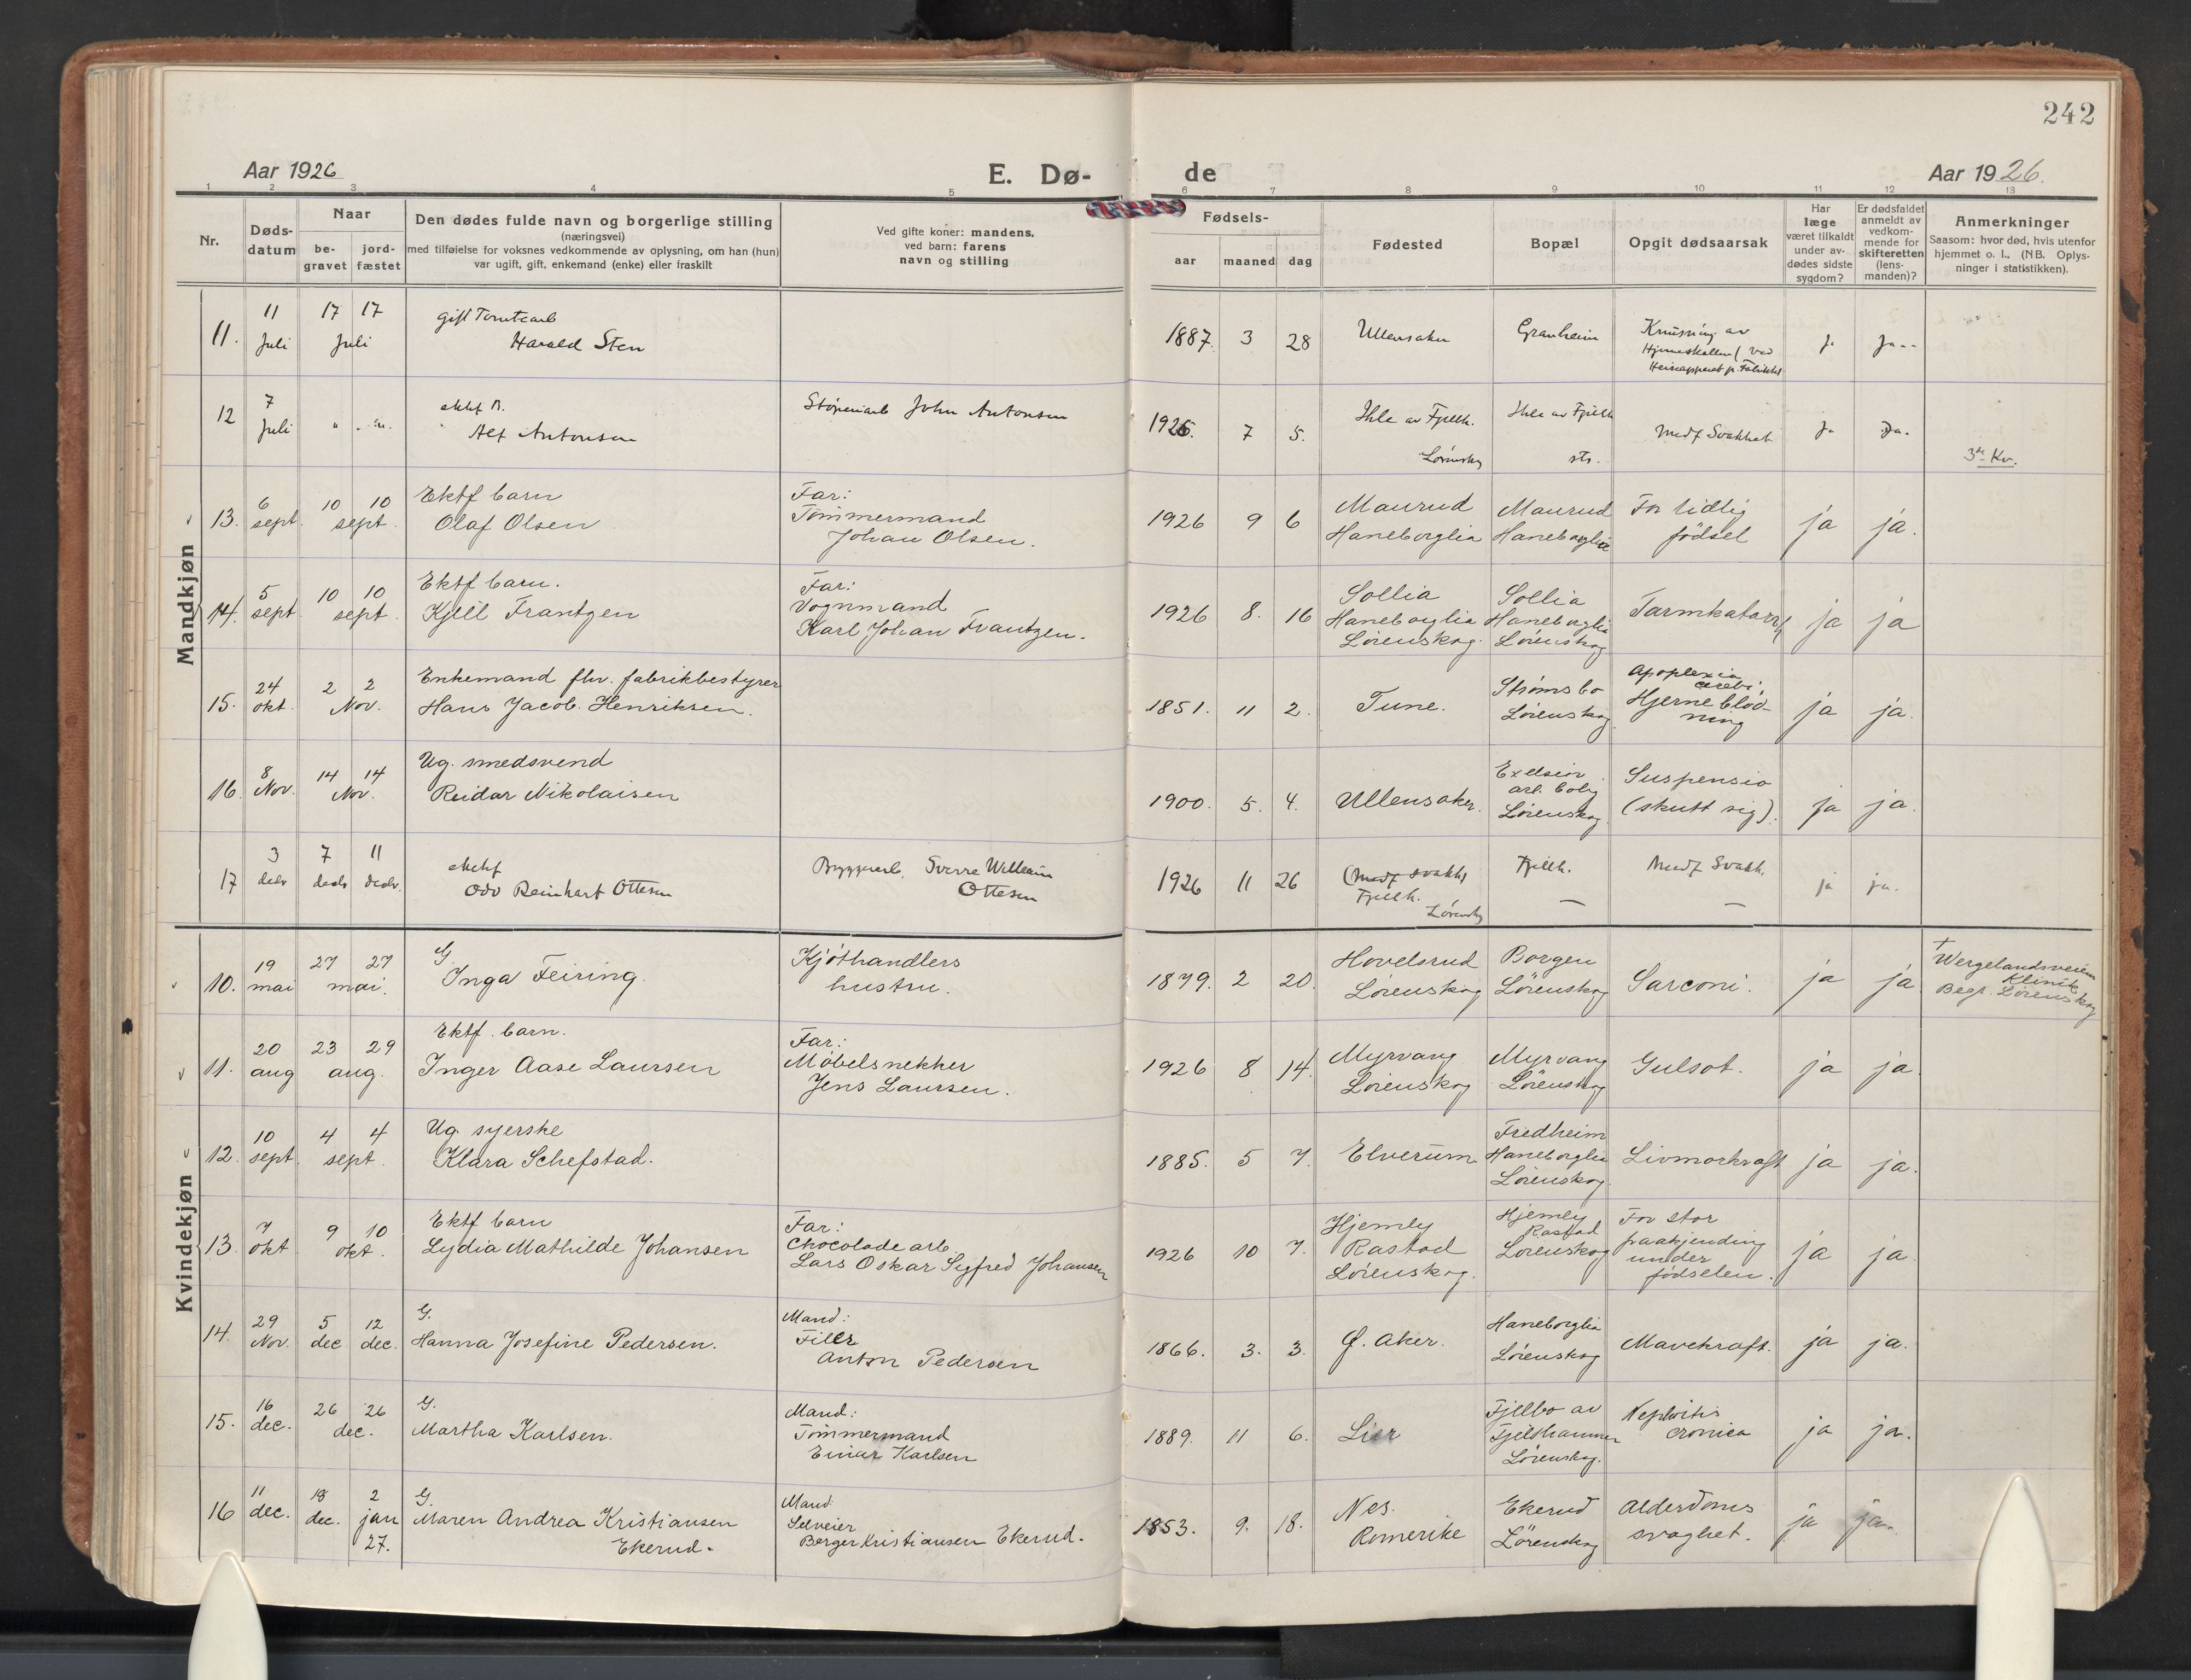 242
Aar 1926
E. Dø-
de
Aar 1926.
1 2 3 4 5 6 7 8 9 10 11 12 13
Nr.
Døds-
datum
Naar
be-
gravet
jord-
fæstet
Den dødes fulde navn og borgerlige stilling
(næringsvei)
med tilføielse for voksnes vedkommende av oplysning, om han (hun)
var ugift, gift, enkemand (enke) eller fraskilt
Ved gifte koner: mandens,
ved barn: farens
navn og stilling
Fødsels-
aar maaned dag
Fødested
Bopæl
Opgit dødsaarsak
Har
læge
været tilkaldt
under av-
dødes sidste
sygdom?
Er dødsfaldet
anmeldt av
vedkom-
mende for
skifteretten
(lens-
manden)?
Anmerkninger
Saasom: hvor død, hvis utenfor
hjemmet o. l.. (NB. Oplys-
ninger i statistikken).
Mandkjøn
11.
11
Juli
17 17
Juli
gift
Harald Sten
1887. 3 28
Ullensaker
Granheim
Knusning av
Hjerneskallen (ved
Heiseapparat p. Fabrikk)
Ja
Ja
12
7
Juli
ektef
Alf Antonsen
John Antonsen
1926. 7 5.
av Fjellh.
Lørenskog
av Fjellh
sts.
Medf Svakhet
Ja
Ja.
3de Kv.
13.
6
sept.
10 10
sept.
Ektf barn
Olaf Olsen
Far:
Tømmermand
Johan Olsen.
1926 9 6
Maurud
Haneborglia
Maurud
Haneborglia
For tidlig
fødsel
ja
ja.
14.
5
sept
10 10
sept.
Ektf barn.
Kjell Frantzen
Far:
Vognmand
Karl Johan Frantzen.
1926 8. 16
Sollia
Haneborglia
Lørenskog.
Sollia
Haneborglia
Lørenskog
Tarmkatarrh
ja
ja
15.
24
okt.
2 2
Nov.
Enkemand fhv. fabrikbestyrer
Hans Jacob Henriksen.
1851. 11 2.
Tune.
Strømsbo
Lørenskog
Apoplexia
cerebri,
Hjerneblød-
ning
ja
ja.
16.
8
Nov.
14 14
Nov.
Ug. smedsvend
Reidar Nikolaisen
1900. 5. 4.
Ullensaker.
Exelsior
arb. bolig
Lørenskog.
Suspensio
(skutt sig).
ja
ja.
17
3
decbr
7
decbr
11
decbr.
ektef
Odv Reinhart Ottesen
Byggearb. Sverre William
Ottesen
1926 11 26
(Medf svakh)
Fjellh.
Lørenskog
Fjellh.
—
Medf Svakh.
—
ja
ja.
Kvindekjøn
10.
19
mai
27 27
mai.
G
Inga Feiring.
Kjøthandlers
hustru.
1879. 2 20.
Hovelsrud
Lørenskog
Borgen
Lørenskog
Sarcom.
ja
ja
† Wergelandsveien
Klinik
Begr. Lørenskog
11.
20
aug
23 29
aug.
Ektf. barn.
Inger Aase Laursen
Far:
Møbelsnekker
Jens Laursen.
1926 8 14.
Myrvang
Lørenskog
Myrvang
Lørenskog
Gulsot.
ja
ja
12.
10
sept.
4 4
sept.
Ug. syerske
Klara Schefstad.
1885. 5 7.
Elverum
Fredheim
Haneborglia
Lørenskog.
Livmorkraft
ja
ja.
13.
7
okt
9 10
okt.
Ektf barn
Lydia Mathilde Johansen
Far:
Chocolade arb.
Lars Oskar Sigfred Johansen
1926 10 7.
Hjemly
Rastad
Lørenskog.
Hjemly
Rastad
Lørenskog
For stor
paakjending
under
fødselen.
ja
ja.
14.
29
Nov.
5
dec
12
dec.
G.
Hanna Josefine Pedersen.
Mand:
Filer
Anton Pedersen
1866. 3. 3.
Ø. Aker.
Haneborglia
Lørenskog
Mavekraft.
ja
ja.
15.
16
dec.
26 26
dec.
G.
Martha Karlsen.
Mand:
Tømmermand
Einar Karlsen
1889. 11 6.
Lier
Fjellbo av
Fjellhammer
Lørenskog.
Nephritis
cronica
ja
ja.
16
11
dec.
18
dec.
2
jan
27.
G.
Maren Andrea Kristiansen
Ekerud.
Mand:
Selveier
Berger Kristiansen Ekerud.
1853. 9. 18.
Nes.
Romerike
Ekerud
Lørenskog
Alderdoms
svaghet.
ja
ja.